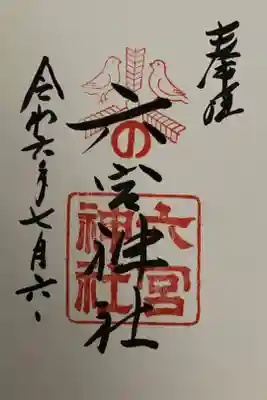 奉拝
六の宮神社
六宮神社
令和六年七月六日